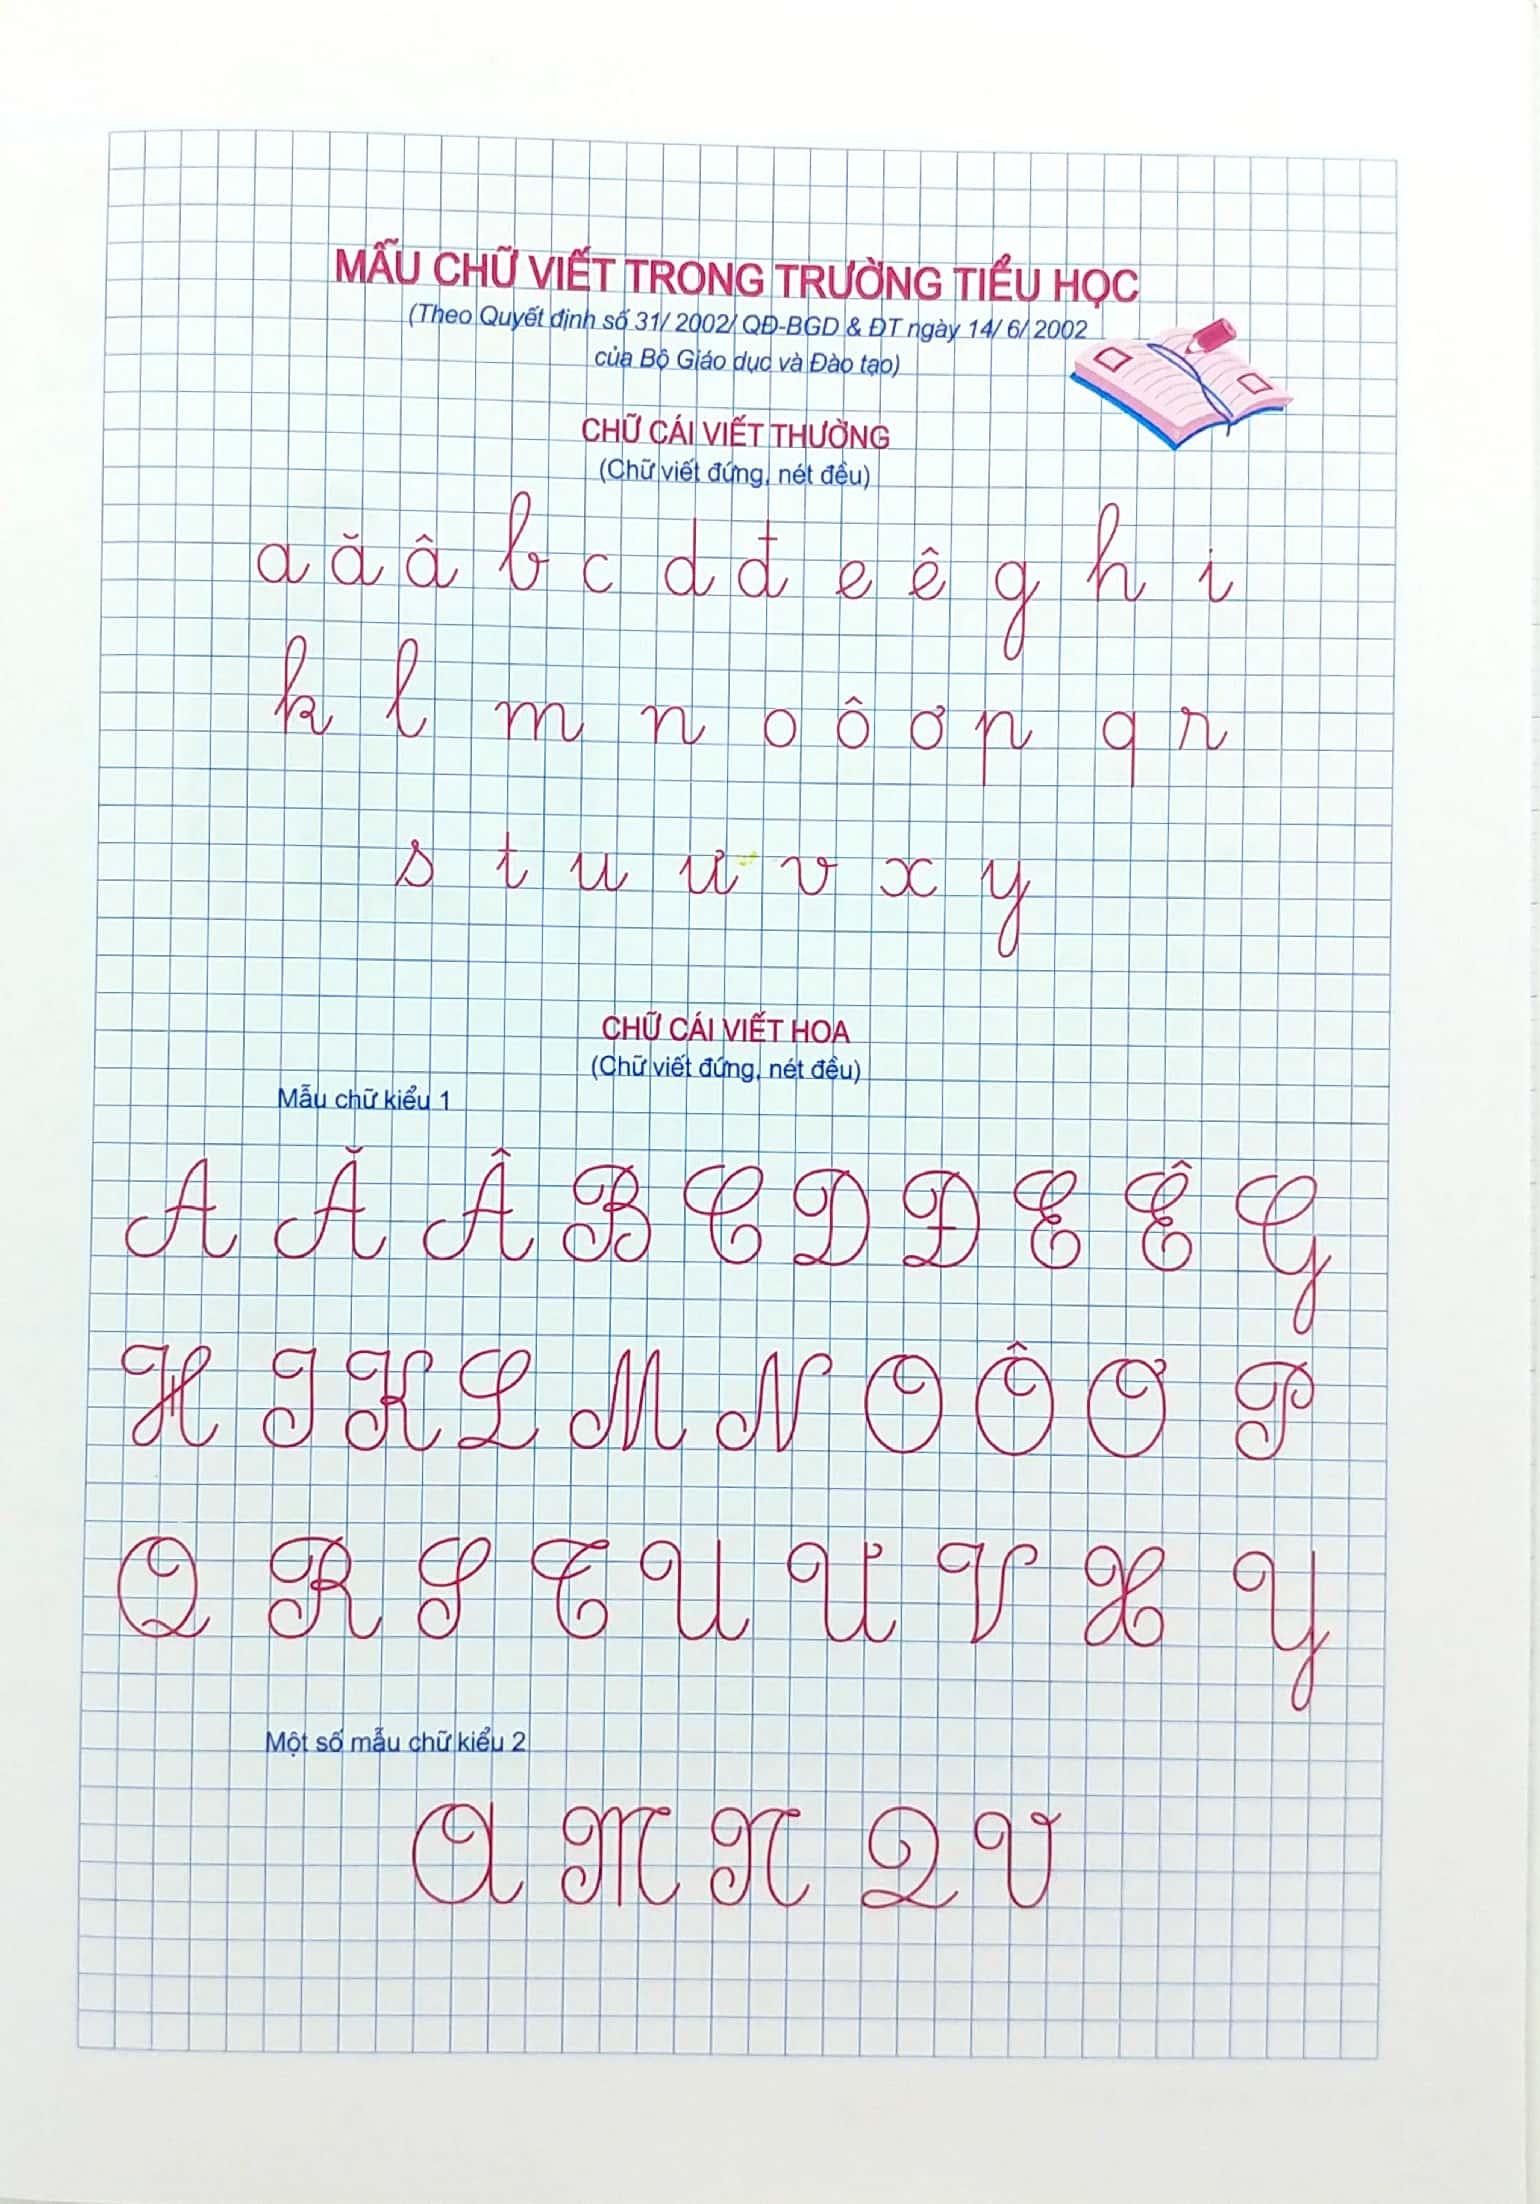 MẪU CHỮ VIẾT TRONG TRƯỜNG TIỂU HỌC
(Theo Quyết định số 31/ 2002/ QĐ-BGD & ĐT ngày 14/ 6/ 2002
của Bộ Giáo dục và Đào tạo)
CHỮ CÁI VIẾT THƯỜNG
(Chữ viết đứng, nét đều)
a ă â b c d đ e ê g h i
k l m n o ô ơ p q r
s t u ư v x y
CHỮ CÁI VIẾT HOA
(Chữ viết đứng, nét đều)
Mẫu chữ kiểu 1
A Ă Â B C D Đ E Ê G
H I K L M N O Ô Ơ P
Q R S T U Ư V X Y
Một số mẫu chữ kiểu 2
A M N Q V